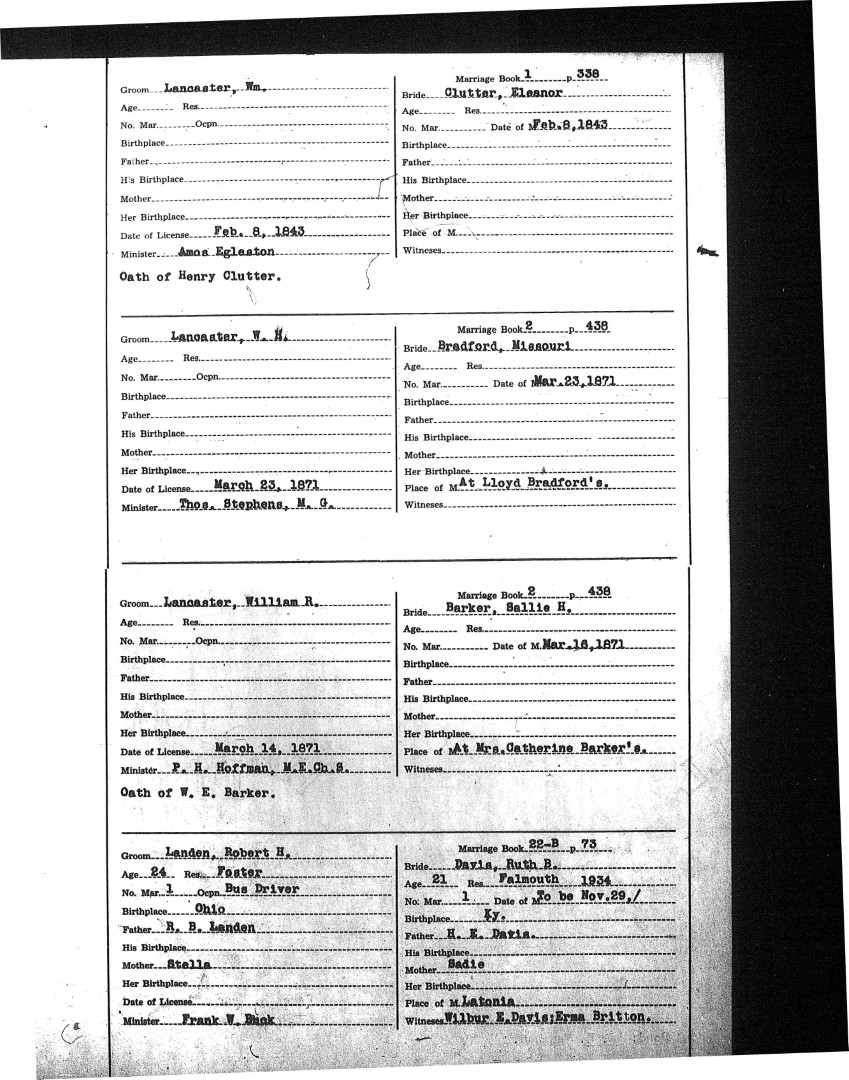 Marriage Book 1 p. 338
Groom Lancaster, Wm.
Bride Clutter, Eleanor
Age Res.
Age Res.
No. Mar. Ocpn.
No. Mar. Date of M. Feb.8,1843
Birthplace
Birthplace
Father
Father
His Birthplace
His Birthplace
Mother
Mother
Her Birthplace
Her Birthplace
Date of License Feb. 8, 1843
Place of M.
Minister Amos Egleston
Witneses
Oath of Henry Clutter.
Marriage Book 2 p. 438
Groom Lancaster, W. H.
Bride Bradford, Missouri
Age Res.
Age Res.
No. Mar. Ocpn.
No. Mar. Date of M. Mar.23,1871
Birthplace
Birthplace
Father
Father
His Birthplace
His Birthplace
Mother
Mother
Her Birthplace
Her Birthplace
Date of License March 23, 1871
Place of M. At Lloyd Bradford's.
Minister Thos. Stephens, M. G.
Witneses
Marriage Book 2 p. 438
Groom Lancaster, William R.
Bride Barker, Sallie H.
Age Res.
Age Res.
No. Mar. Ocpn.
No. Mar. Date of M. Mar.16,1871
Birthplace
Birthplace
Father
Father
His Birthplace
His Birthplace
Mother
Mother
Her Birthplace
Her Birthplace
Date of License March 14, 1871
Place of M. At Mrs.Catherine Barker's.
Minister P. H. Hoffman, M.E.Ch.S.
Witneses
Oath of W. E. Barker.
Marriage Book 22-B p. 73
Groom Landen, Robert H.
Bride Davis, Ruth B.
Age 24 Res. Foster
Age 21 Res. Falmouth 1934
No. Mar. 1 Ocpn. Bus Driver
No. Mar. 1 Date of M. To be Nov.29,/
Birthplace Ohio
Birthplace Ky.
Father R. B. Landen
Father H. E. Davis.
His Birthplace
His Birthplace
Mother Stella
Mother Sadie
Her Birthplace
Her Birthplace
Date of License
Place of M. Latonia
Minister Frank W. Buok
Witneses Wilbur E.Davis;Erma Britton.